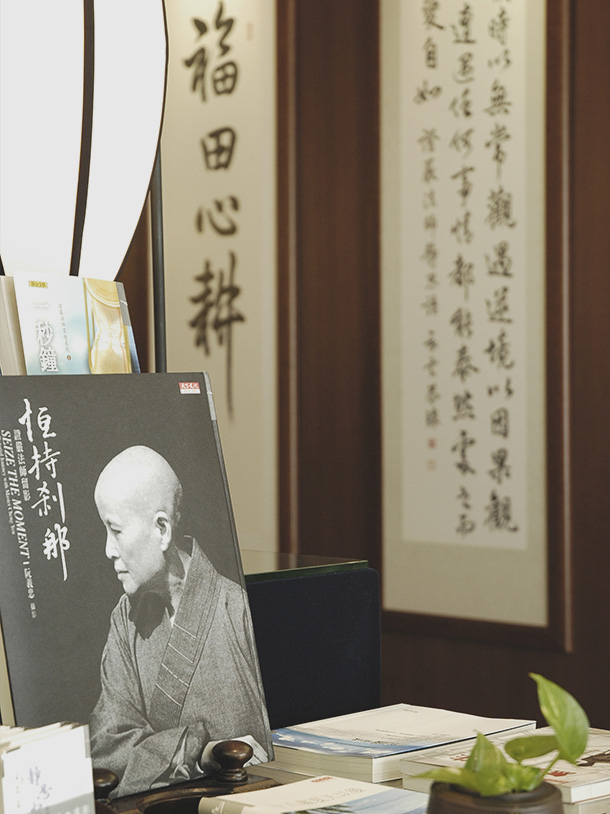 福田心耕
時以無常觀遇逆境以因果觀
達遇任何事情都能泰然處之而
自如
證嚴法師靜思語
秒鐘
恒持刹那
證嚴法師留影
SEIZE THE MOMENT
阮義忠 攝影